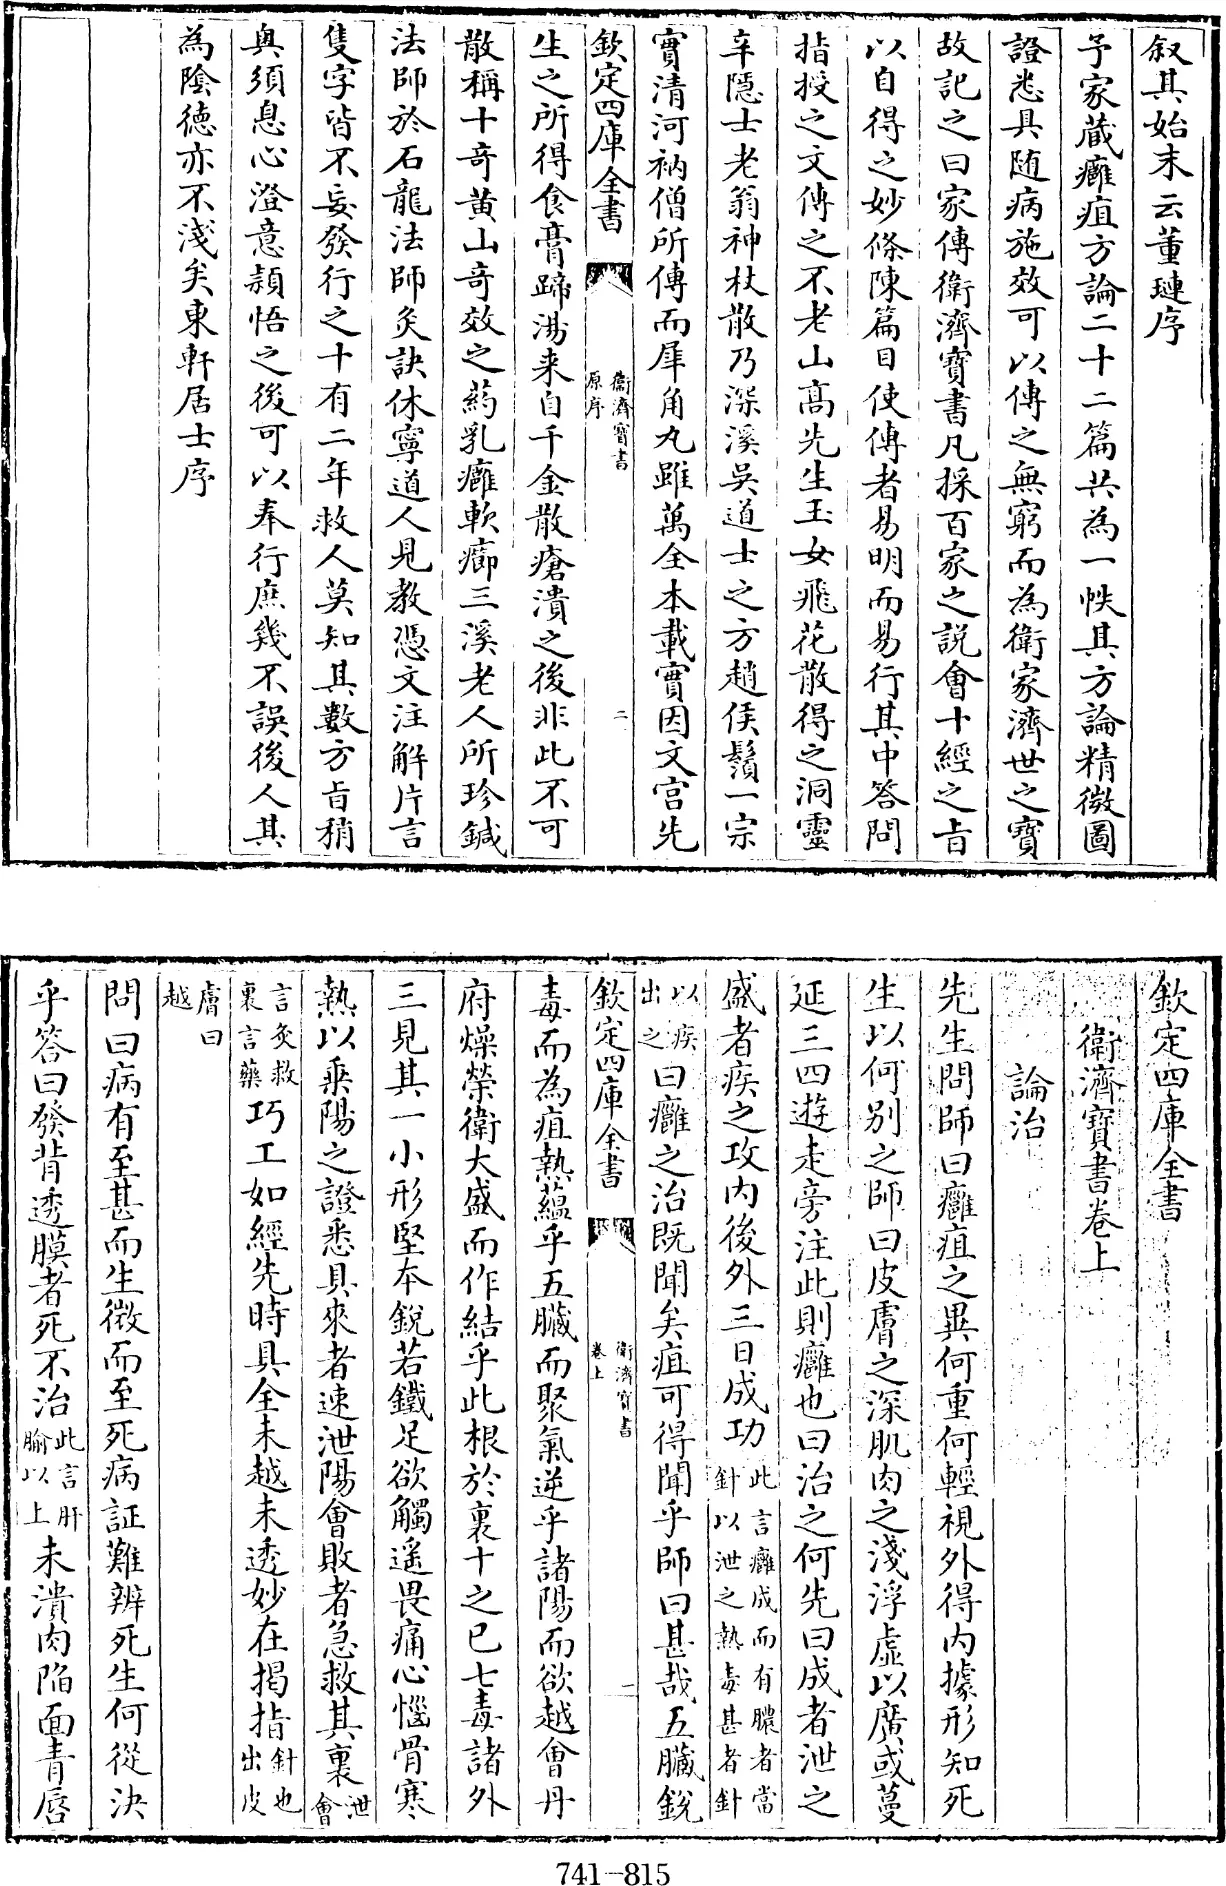 叙其始末云董璉序
予家蔵癰疽方論二十二篇共為一帙其方論精微圖
證悉具随病施效可以傳之無窮而為衛家濟世之寶
故記之曰家傳衛濟寶書凡採百家之説會十經之㫖
以自得之妙條陳篇目使傳者易明而易行其中答問
指授之文傳之不老山髙先生玉女飛花散得之洞靈
辛隱士老翁神杖散乃深溪吳道士之方趙侯鬚一宗
實清河衲僧所傳而犀角丸雖萬全本載實因文宫先
欽定四庫全書
衞濟寶書
原序
二
生之所得食膏蹄湯来自千金散瘡潰之後非此不可
散稱十奇黄山奇效之藥乳癰軟癤三溪老人所珍鍼
法師於石龍法師灸訣休寧道人見教憑文注解片言
隻字皆不妄發行之十有二年救人莫知其數方㫖稍
奥須息心澄意頴悟之後可以奉行庶幾不誤後人其
為隂徳亦不淺矣東軒居士序
欽定四庫全書
衛濟寶書卷上
論治
先生問師曰癰疽之異何重何輕視外得内據形知死
生以何别之師曰皮膚之深肌肉之淺浮虚以廣或蔓
延三四遊走旁注此則癰也曰治之何先曰成者泄之
盛者疾之攻内後外三日成功此言癰成而有膿者當針以泄之熱毒甚者針
以疾出之曰癰之治既聞矣疽可得聞乎師曰甚哉五臟銳
欽定四庫全書
衛濟寶書
卷上
一
毒而為疽熱藴乎五臓而聚氣逆乎諸陽而欲越會丹
府燥榮衛大盛而作結乎此根於裏十之已七毒諸外
三見其一小形堅夲銳若鐵足欲觸遥畏痛心惱骨寒
熱以乗陽之證悉具來者速泄陽會敗者急救其裏泄會
言灸救裏言藥巧工如經先時具全未越未透妙在揭指針也出皮
膚曰越
問曰病有至甚而生微而至死病証難辨死生何從決
乎答曰發背透膜者死不治此言肝腧以上未潰肉陷面青唇
741-815